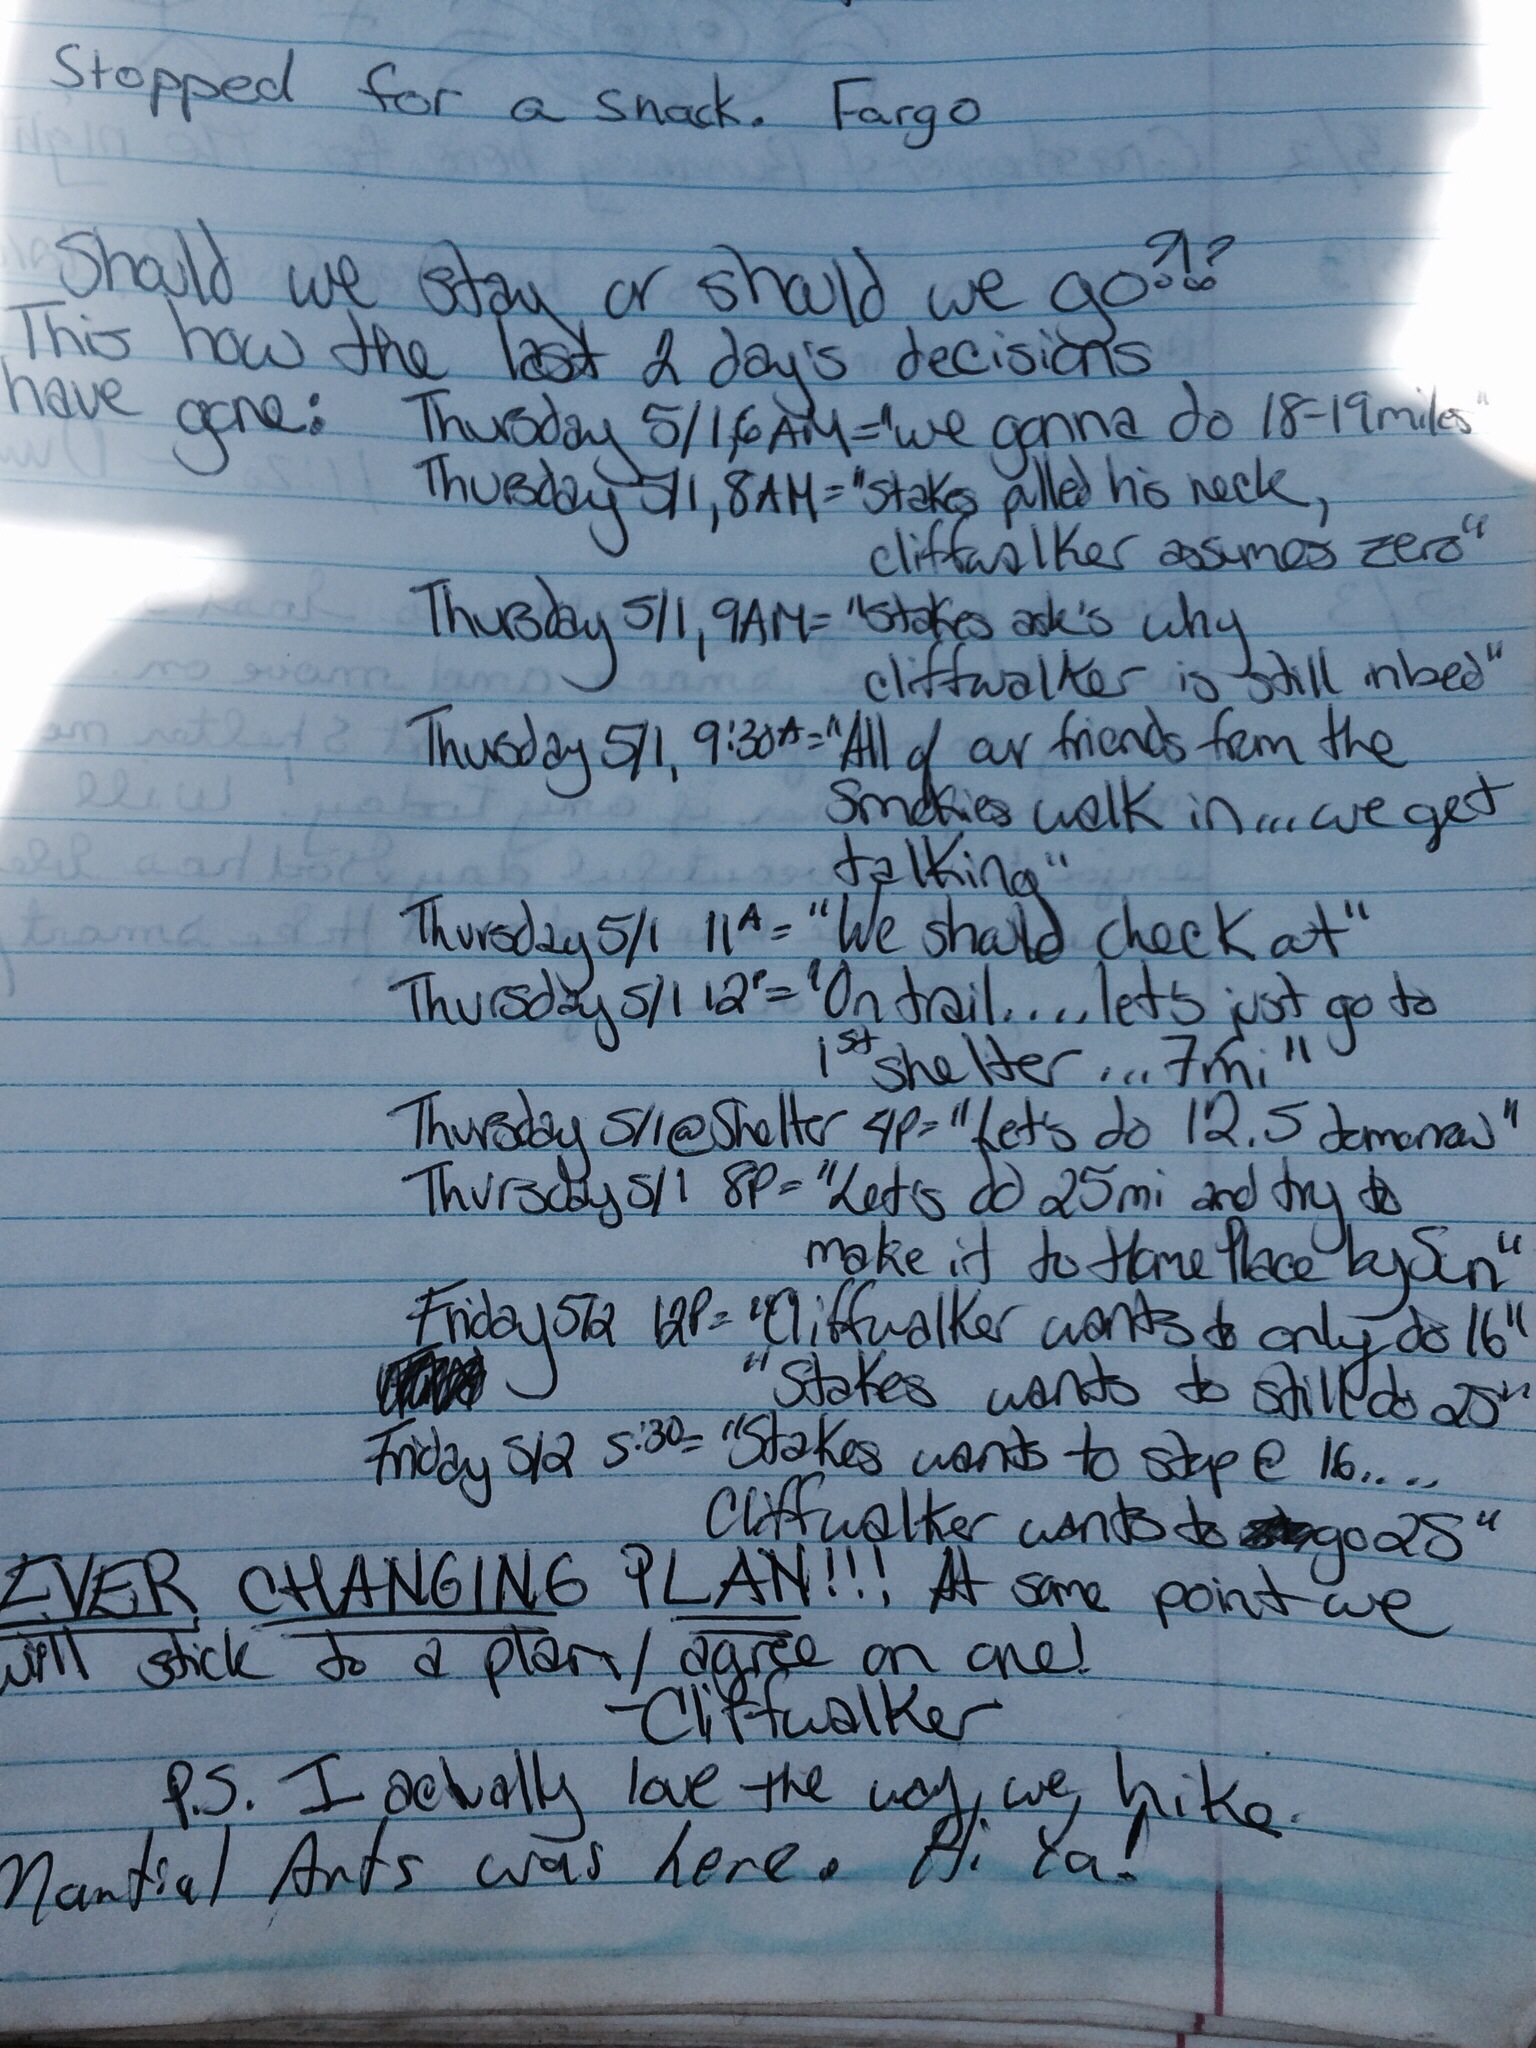 Stopped for a snack. Fargo
Should we stay or should we go?!?
This how the last 2 day's decisions
have gone:
Thursday 5/1, 6AM = "we gonna do 18-19 miles"
Thursday 5/1, 8AM = "Stakes pulled his neck,
cliffwalker assumes zero"
Thursday 5/1, 9AM = "Stakes ask's why
cliffwalker is still inbed"
Thursday 5/1, 9:30A = "All of our friends from the
Smokies walk in... we get
talking"
Thursday 5/1 11A = "We should check out"
Thursday 5/1 12P = "On trail..... let's just go to
1st shelter ... 7mi"
Thursday 5/1 @ Shelter 4P = "Let's do 12.5 tomorrow"
Thursday 5/1 8P = "Let's do 25mi and try to
make it to Home Place by Sun"
Friday 5/2 12P = "Cliffwalker wants to only do 16"
"Stakes wants to still do 25"
Friday 5/2 5:30 = "Stakes wants to stop @ 16....
Cliffwalker wants to go 25"
EVER CHANGING PLAN!!! At some point we
will stick to a plan / agree on one!
-Cliffwalker
P.S. I actually love the way we hike.
Mantial Ants was here. Hi Ya!